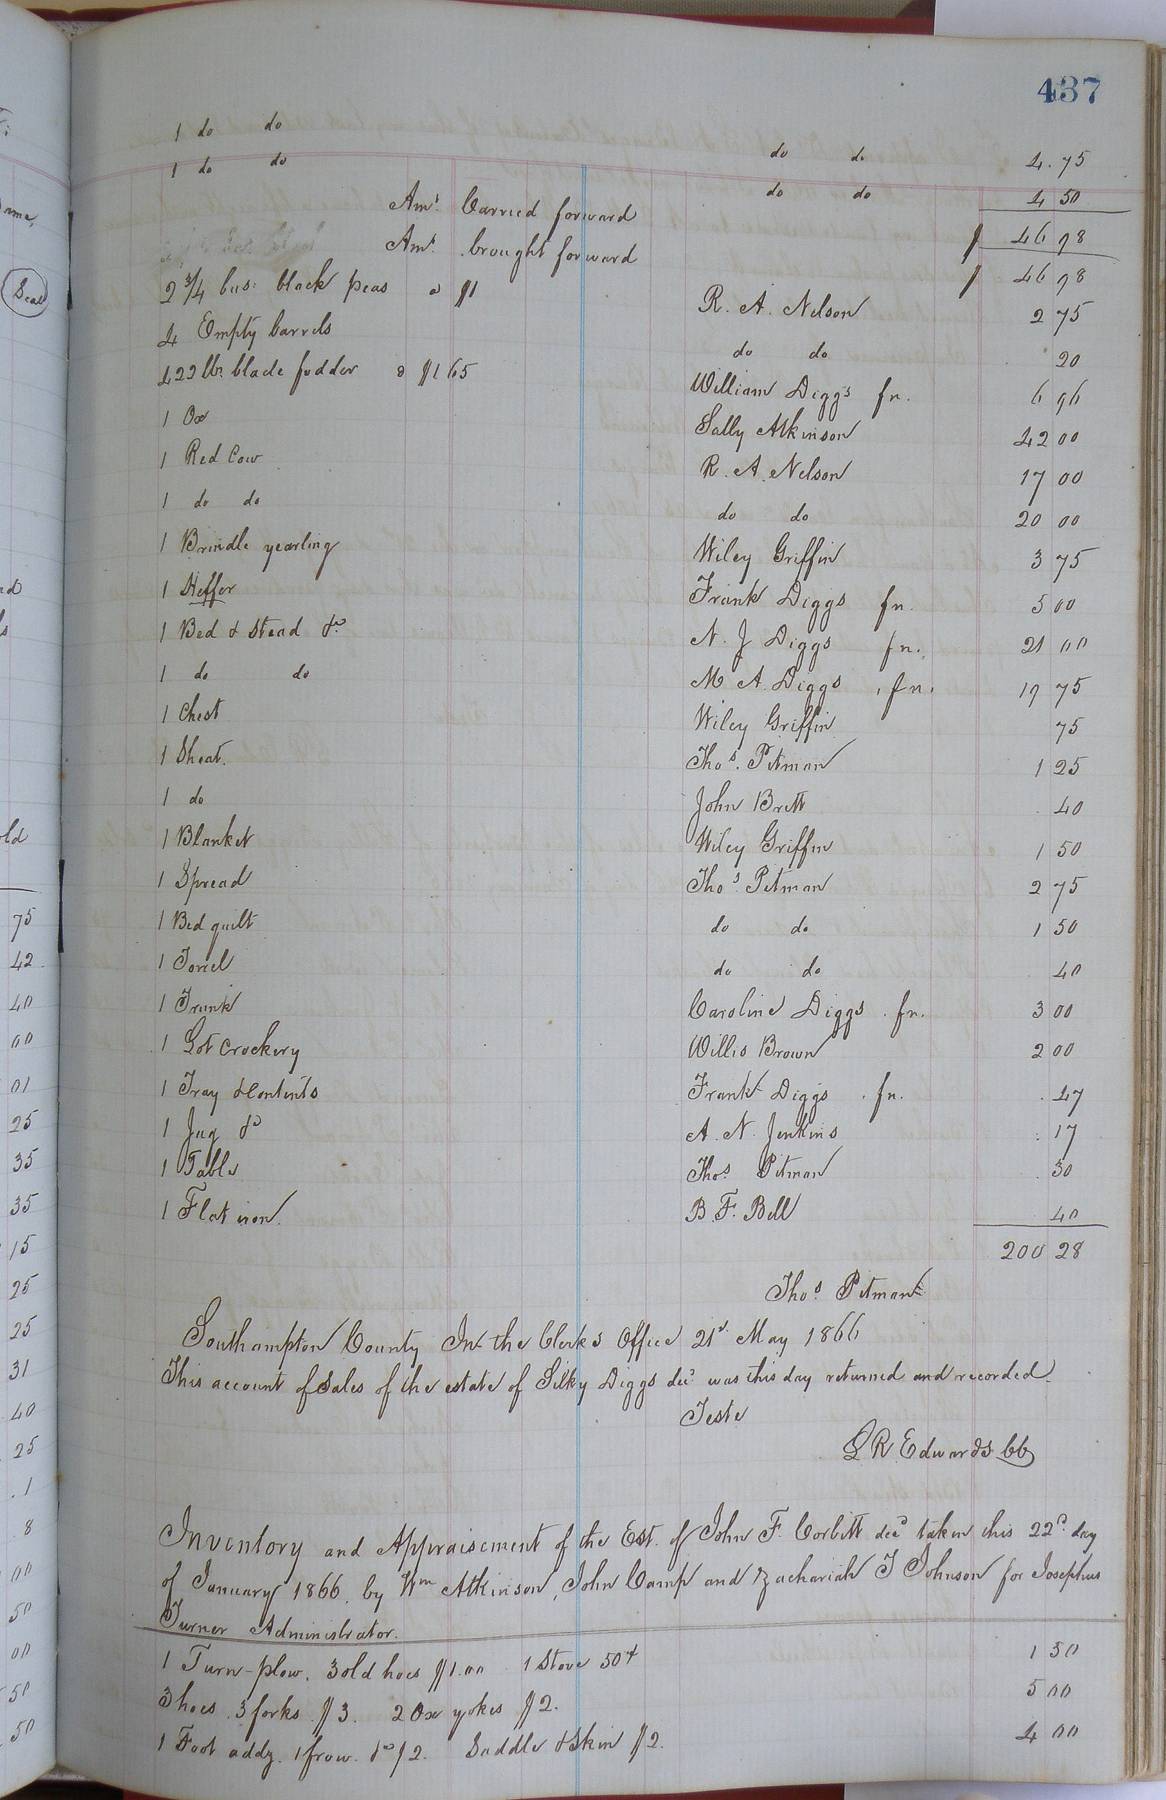 437
1 do do do do 4.75
1 do do do do 4 50
Amt. Carried forward $ 46 98
Amt. brought forward $ 46 98
2 3/4 bus: black peas @ $1 R. A. Nelson 2 75
4 Empty barrels do do 20
422 lbs. blade fodder @ $1 65 William Diggs fn. 6 96
1 Ox Sally Atkinson 42 00
1 Red Cow R. A. Nelson 17 00
1 do do do do 20 00
1 Brindle yearling Wiley Griffin 3 75
1 Heffer Frank Diggs fn. 5 00
1 Bed & Stead &c. N. J Diggs fn. 21 00
1 do do M A. Diggs, fn. 19 75
1 Chest Wiley Griffin 75
1 Sheat. Thos. Pitman 1 25
1 do John Brett 40
1 Blanket Wiley Griffin 1 50
1 Spread Thos. Pitman 2 75
1 Bed quilt do do 1 50
1 Towel do do 40
1 Trunk Caroline Diggs. fn. 3 00
1 Lot Crockery Willis Brown 2 00
1 Tray & Contents Frank Diggs. fn. 47
1 Jug &c A. N. Jenkins 17
1 Table Thos. Pitman 30
1 Flat iron. B. F. Bell 40
200 28
Thos. Pitman
Southampton County In the Clerks Office 21st May 1866
This account of Sales of the estate of Silky Diggs decd. was this day returned and recorded.
Teste
L R Edwards CC
Inventory and Appraisement of the Est. of John F. Corbitt decd. taken this 22d. day
of January 1866, by Wm Atkinson, John Camp and Zachariah T Johnson for Josephus
Turner Administrator.
1 Turn-plow. 3 old hoes $1.00 1 Stove 50¢ 1 50
3 hoes. 3 forks. $3. 2 Ox yokes $2. 5 00
1 Foot addz. 1 frow. &c $2. Saddle & Skin $2. 4 00
Seal
75
42
40
00
01
25
35
35
15
25
25
31
40
25
1
8
00
50
00
50
50